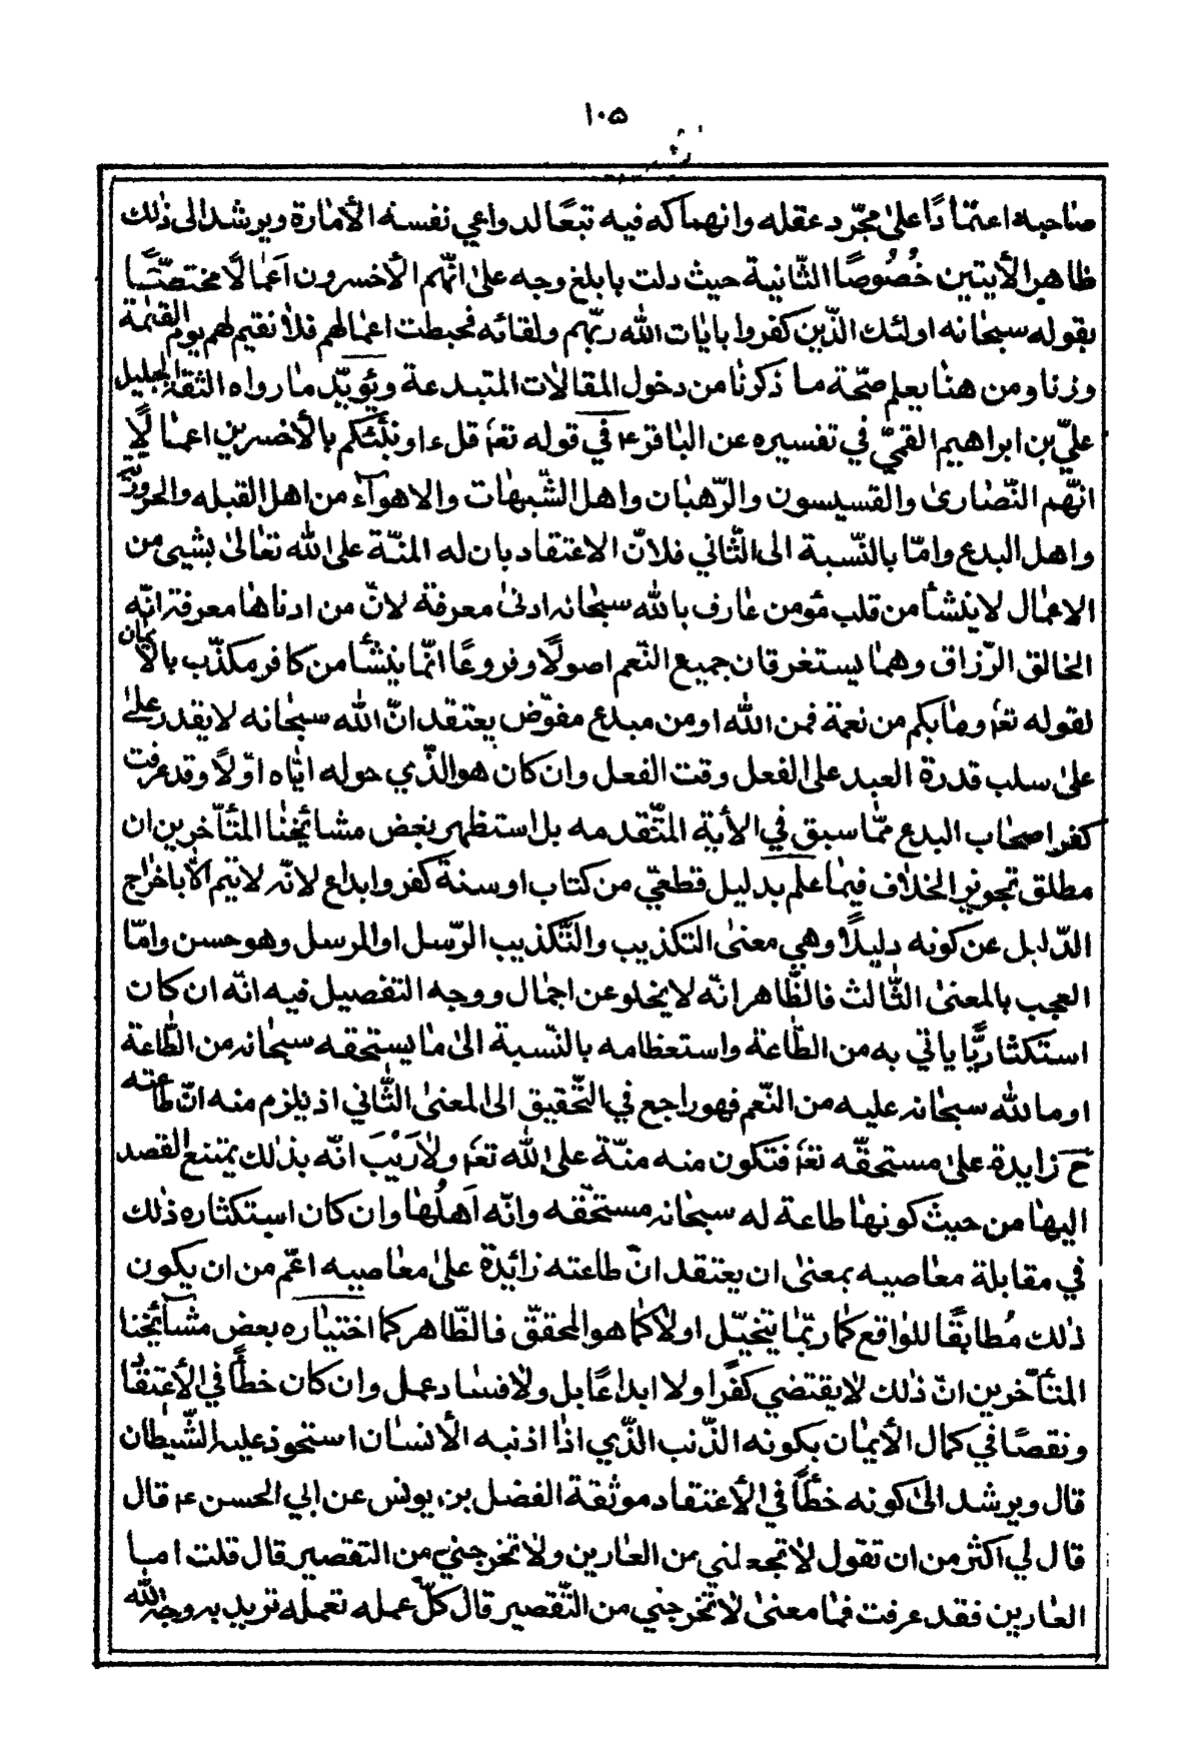 ١٠٥
صاحبه اعتمادًا على مجّرد عقله وانهماكه فيه تبعًا لدواعي نفسه الأمارة ويرشد الى ذلك
ظاهر الأيتين خُصُوصًا الثّانية حيث دلت بابلغ وجه على انّهم الأخسرون اَعمالًا مختصّتًا
بقوله سبحانه اولئك الذّين كفروا بايات الله ربّهم ولقائه فحبطت اعمالهم فلا نقيم لهم يوم القيمة
وزنا ومن هنا يعلم صّحة ما ذكرنا من دخول المقالات المتبدعة ويُؤيّد ما رواه الثقة الجليل
عليّ بن ابراهيم القميّ في تفسيره عن الباقر ع في قوله تعا قل ءاونبّئكم بالأخسرين اعمالًا
انّهم النّصارى والقسيسون والرّهبان واهل الشّبهات والاهوآء من اهل القبله والحروريّة
واهل البدع وامّا بالنّسبة الى الثّاني فلانّ الاعتقاد بان له المنّة على الله تعالى بشيى من
الاعمال لا ينشأ من قلب مؤمن عارف بالله سبحانه ادنى معرفة لانّ من ادناها معرفة انّه
الخالق الرّزاق وهما يستغرقان جميع النّعم اصولًا وفروعًا انّما ينشأ من كافر مكذّب بالأيمان
لقوله تعا وما بكم من نعمة فمن الله او من مبدع مفوّض يعتقد انّ الله سبحانه لا يقدر على
على سلب قدرة العبد على الفعل وقت الفعل وان كان هو الذّي حوله ايّاه اوّلًا وقد عرفت
كفر اصحاب البدع ممّا سبق في الأية المتّقدمه بل استظهر بعض مشائخنا المتأخرين ان
مطلق تجويز الخلاف فيما علم بدليل قطعيّ من كتاب او سنة كفر وابداع لانّه لا يتم الّا باخراج
الدّليل عن كونه دليلًا وهي معنى التكذيب والتّكذيب الرّسل او المرسل وهو حسن وامّا
العجب بالمعنى الثّالث فالظّاهر انّه لا يخلو عن اجمال ووجه التفصيل فيه انّه ان كان
استكثار يًّا ياتي به من الطّاعة واستعظامه بالنّسبة الى ما يستحقه سبحانه من الطّاعة
او ما لله سبحانه عليه من النّعم فهو راجع في التّحقيق الى المعنى الثّاني اذ يلزم منه انّ طاعته
ح زايدة على مستحقّه تعا فتكون منه منّة على الله تعا ولا رَيْبَ انّه بذلك يمتنع القصد
اليها من حيث كونها طاعة له سبحانه مستحّقه وانّه اَهلُها وان كان استكثاره ذلك
في مقابلة معاصيه بمعنى ان يعتقد انّ طاعته زائدة على معاصيه اعّم من ان يكون
ذلك مُطابقًا للواقع كما ربّما يتخيّل اولا كما هو المحققّ فالظّاهر كما اختياره بعض مشآئخنا
المتأخّرين انّ ذلك لا يقتضي كفرًا ولا ابداعًا بل ولا فساد عمل وان كان خطأً في الأعتقاد
ونقصًا في كمال الأيمان بكونه الذّنب الذّي اذا اذنبه الأنسان استحوذ عليه الشّيطان
قال ويرشد الى كونه خطأً في الأعتقاد موثقة الفضل بن يونس عن ابي الحسن ع قال
قال لي اكثر من ان تقول لا تجعلني من العارين ولا تخرجني من التقصير قال قلت اما
العارين فقد عرفت فما معنى لا تخرجني من التّقصير قال كلّ عمله تعمله تريد به وجه الله